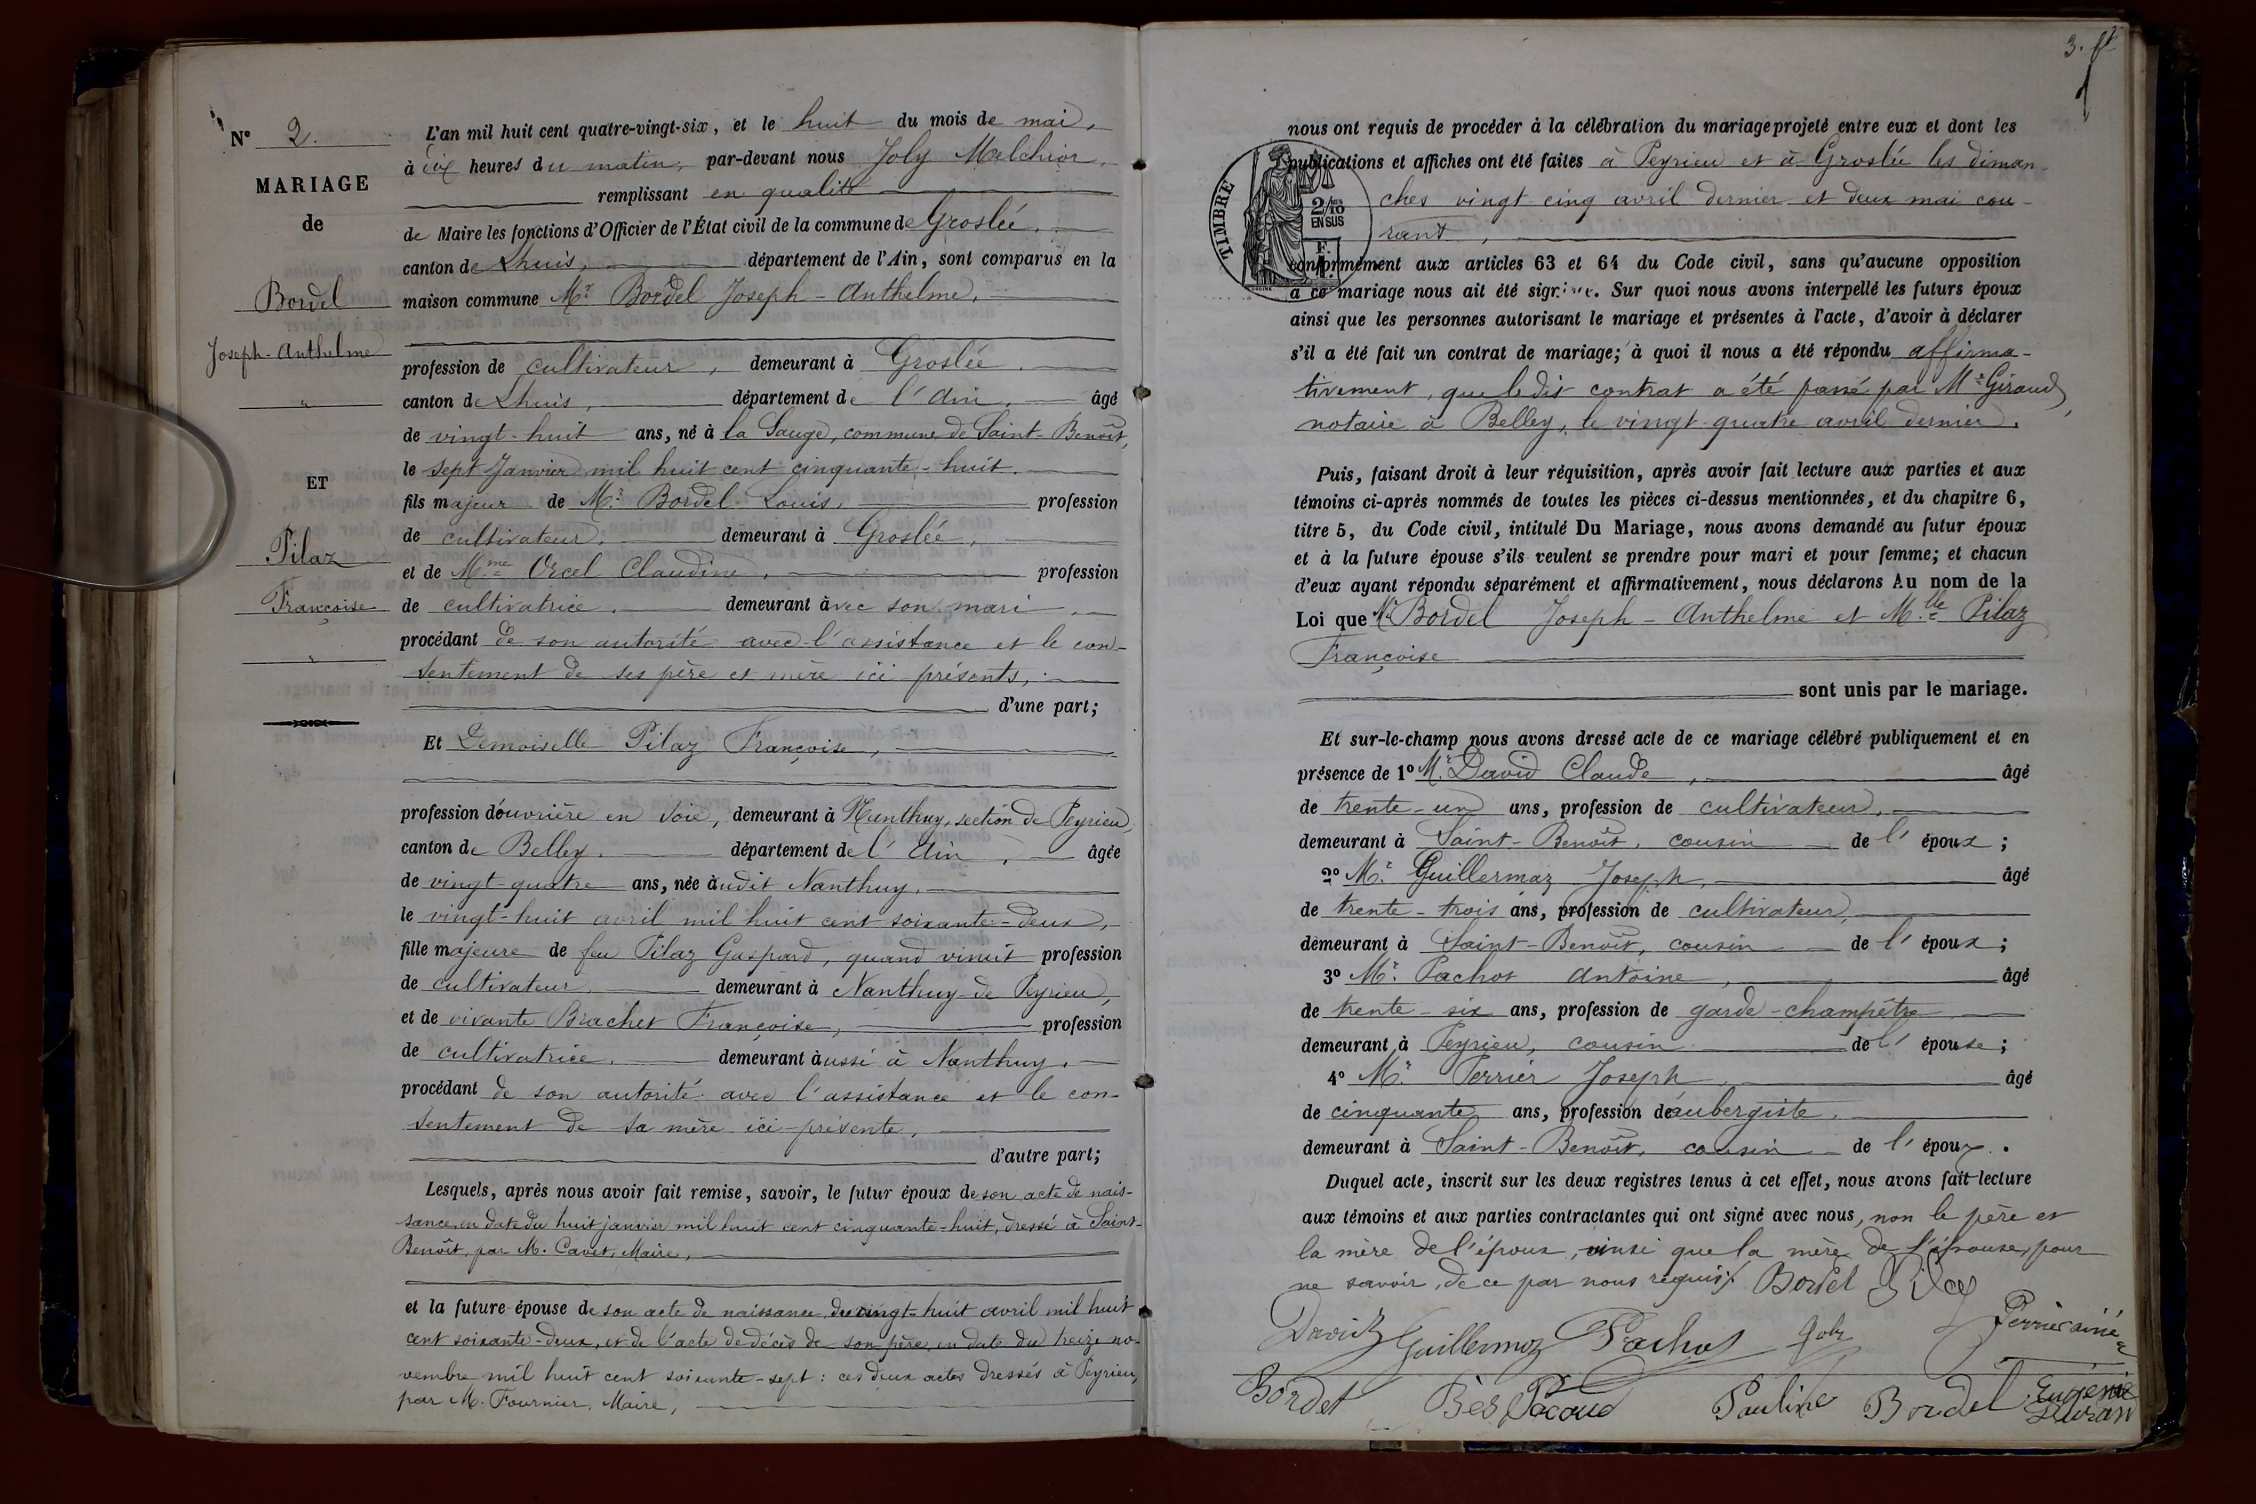 N° 2.
MARIAGE
de
Bordel
Joseph-Anthelme
"
ET
Pilaz
Françoise
"
L'an mil huit cent quatre-vingt-six, et le huit du mois de mai,
à dix heures du matin, par-devant nous Joly Melchior,
remplissant en qualité
de Maire les fonctions d'Officier de l'État civil de la commune de Groslée.
canton de Lhuis, département de l'Ain, sont comparus en la
maison commune Mr. Bordel Joseph-Anthelme,
profession de cultivateur, demeurant à Groslée.
canton de Lhuis, département de l'Ain, âgé
de vingt-huit ans, né à la Sauge, commune de Saint-Benoît,
le sept Janvier mil huit cent cinquante-huit.
fils majeur de Mr. Bordel Louis, profession
de cultivateur, demeurant à Groslée,
et de Mme Orcel Claudine, profession
de cultivatrice. demeurant avec son mari
procédant de son autorité avec l'assistance et le con-
sentement de ses père et mère ici présents,
d'une part;
Et Demoiselle Pilaz Françoise,
profession d'ouvrière en soie, demeurant à Nanthuy, section de Peyrieu,
canton de Belley. département de l'Ain, âgée
de vingt-quatre ans, née audit Nanthuy,
le vingt-huit avril mil huit cent soixante-deux,
fille majeure de feu Pilaz Gaspard, quand vivait profession
de cultivateur demeurant à Nanthuy-de Peyrieu,
et de vivante Brachet Françoise, profession
de cultivatrice. demeurant aussi à Nanthuy.
procédant de son autorité avec l'assistance et le con-
sentement de sa mère ici présente,
d'autre part;
Lesquels, après nous avoir fait remise, savoir, le futur époux de son acte de nais-
sance, en date du huit janvier mil huit cent cinquante-huit, dressé à Saint-
Benoît, par M. Cavet, Maire,
et la future épouse de son acte de naissance du vingt-huit avril mil huit
cent soixante-deux, et de l'acte de décès de son père, en date du treize no-
vembre mil huit cent soixante-sept : ces deux actes dressés à Peyrieu,
par M. Fournier, Maire,
3.
nous ont requis de procéder à la célébration du mariage projeté entre eux et dont les
publications et affiches ont été faites à Peyrieu et à Groslée les diman-
ches vingt cinq avril dernier et deux mai cou-
rant,
TIMBRE
2/10
EN SUS
conformément aux articles 63 et 64 du Code civil, sans qu'aucune opposition
à ce mariage nous ait été signifiée. Sur quoi nous avons interpellé les futurs époux
ainsi que les personnes autorisant le mariage et présentes à l'acte, d'avoir à déclarer
s'il a été fait un contrat de mariage; à quoi il nous a été répondu affirma-
tivement, que ledit contrat a été passé par Me Giraud,
notaire à Belley, le vingt quatre avril dernier.
Puis, faisant droit à leur réquisition, après avoir fait lecture aux parties et aux
témoins ci-après nommés de toutes les pièces ci-dessus mentionnées, et du chapitre 6,
titre 5, du Code civil, intitulé Du Mariage, nous avons demandé au futur époux
et à la future épouse s'ils veulent se prendre pour mari et pour femme; et chacun
d'eux ayant répondu séparément et affirmativement, nous déclarons Au nom de la
Loi que Mr Bordel Joseph-Anthelme et Mlle Pilaz
Françoise
sont unis par le mariage.
Et sur-le-champ nous avons dressé acte de ce mariage célébré publiquement et en
présence de 1° Mr. David Claude, âgé
de trente-un ans, profession de cultivateur,
demeurant à Saint-Benoît, cousin de l'époux;
2° Mr. Guillermaz Joseph, âgé
de trente-trois ans, profession de cultivateur,
demeurant à Saint-Benoît, cousin de l'époux;
3° Mr. Pachot Antoine, âgé
de trente-six ans, profession de garde-champêtre
demeurant à Peyrieu, cousin de l'épouse;
4° Mr. Perrier Joseph, âgé
de cinquante ans, profession d'aubergiste.
demeurant à Saint-Benoît, cousin de l'époux.
Duquel acte, inscrit sur les deux registres tenus à cet effet, nous avons fait lecture
aux témoins et aux parties contractantes qui ont signé avec nous, non le père et
la mère de l'époux, ainsi que la mère de l'épouse, pour
ne savoir, de ce par nous requis. Bordel Pilaz
David Guillermoz Pachot Joly Perrier ainé
Bordel Bès Pacoud Pauline Bordel Eugénie